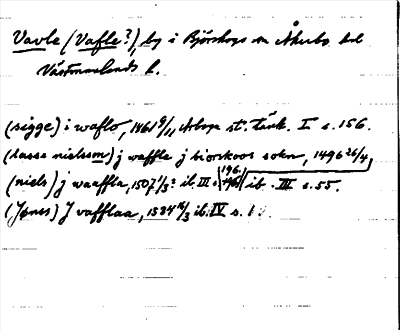 Vavle (Vafle?), by i Björskogs sn Åkerbo hd
Västmanlands l.
(sigge) i waflo, 1461 9/11 Arboga st. tänk. I s. 156.
(lasse nielsson) j waffle j biorskoos sokn, 1496 26/4,
(niels) j waaffla, 1507 1/3? ib. III s. 196. ib. III s. 55.
(Jönes) J vafflaa, 1534 16/3 ib. IV s. 1